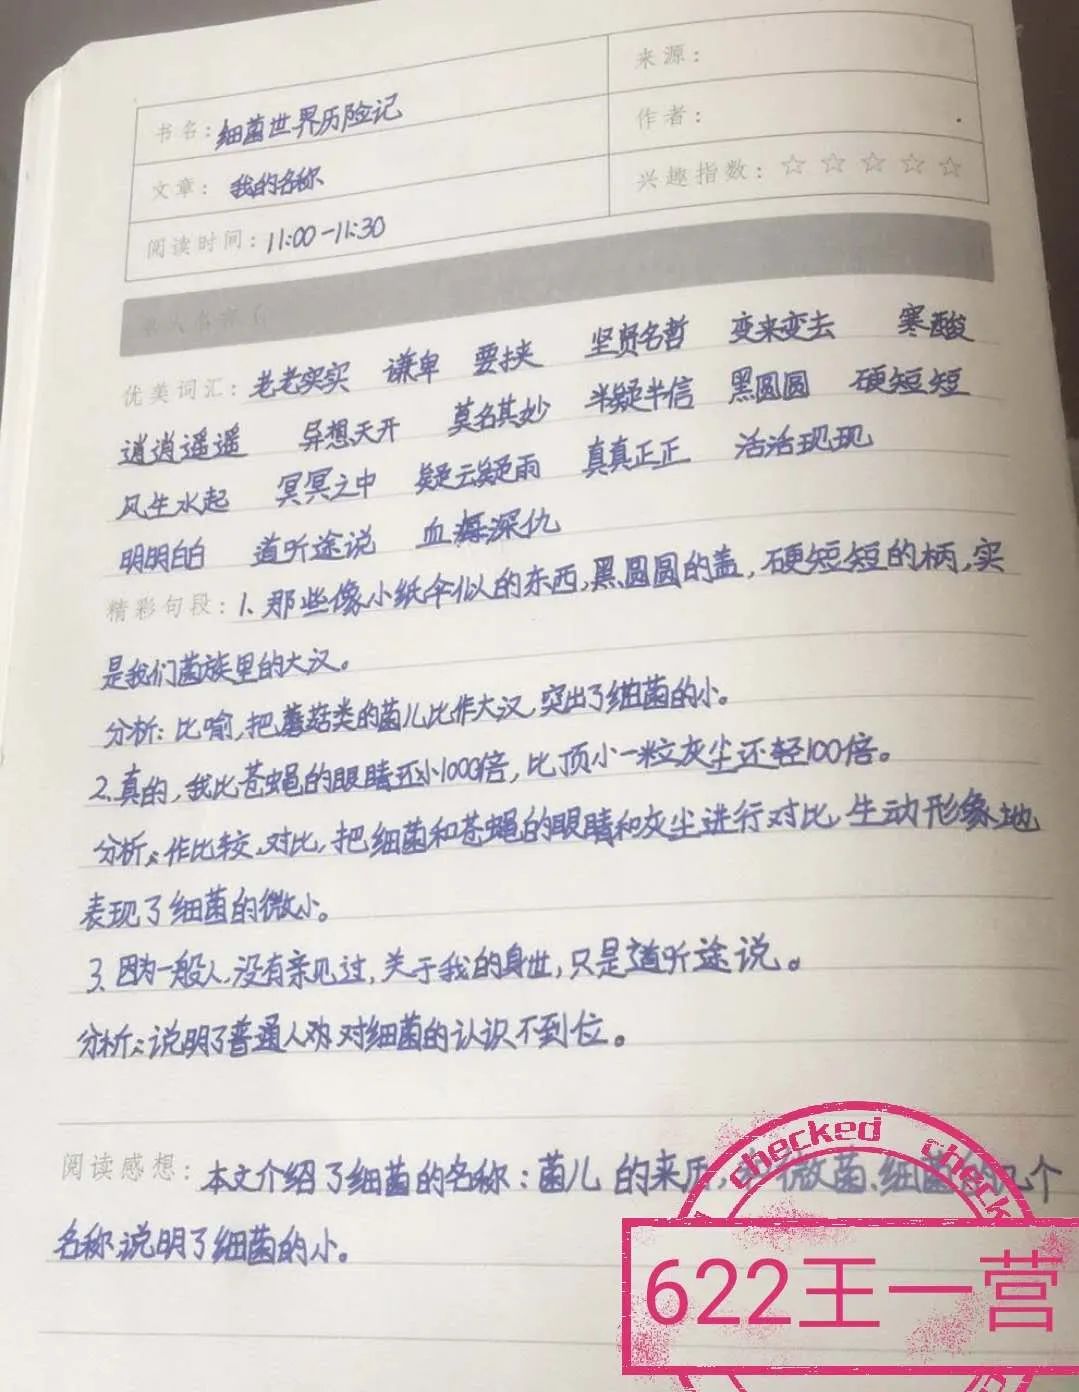 书名：细菌世界历险记
来源：
文章：我的名称
作者：
阅读时间：11:00-11:30
兴趣指数：☆ ☆ ☆ ☆ ☆
优美词汇：老老实实 谦卑 要挟 坚贤名哲 变来变去 寒酸
逍逍遥遥 异想天开 莫名其妙 半疑半信 黑圆圆 硬短短
风生水起 冥冥之中 疑云疑雨 真真正正 活活现现
明明白白 道听途说 血海深仇
精彩句段：1、那些像小纸伞似的东西,黑圆圆的盖,硬短短的柄,实
是我们菌族里的大汉。
分析：比喻,把蘑菇类的菌儿比作大汉,突出了细菌的小。
2、真的,我比苍蝇的眼睛还小1000倍,比顶小一粒灰尘还轻100倍。
分析：作比较、对比,把细菌和苍蝇的眼睛和灰尘进行对比,生动形象地
表现了细菌的微小。
3、因为一般人,没有亲见过,关于我的身世,只是道听途说。
分析：说明了普通人对细菌的认识不到位。
阅读感想：本文介绍了细菌的名称：菌儿的来历, 微菌、细菌 几个
名称,说明了细菌的小。
checked checked
622王一营